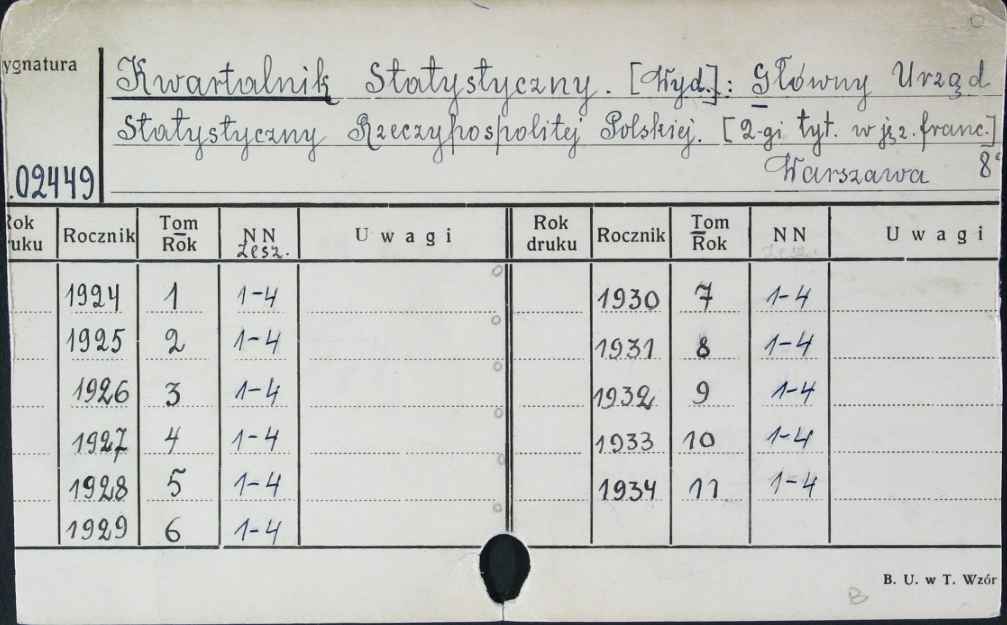 ygnatura
Kwartalnik Statystyczny. [Wyd.]: Główny Urząd
Statystyczny Rzeczypospolitej Polskiej. [2-gi tyt. w jęz. franc.]
.02449 Warszawa 8°
Rok uku Rocznik Tom Rok NN zesz. Uwagi Rok druku Rocznik Tom Rok NN zesz. Uwagi
1924 1 1-4 1930 7 1-4
1925 2 1-4 1931 8 1-4
1926 3 1-4 1932 9 1-4
1927 4 1-4 1933 10 1-4
1928 5 1-4 1934 11 1-4
1929 6 1-4
B. U. w T. Wzór
B